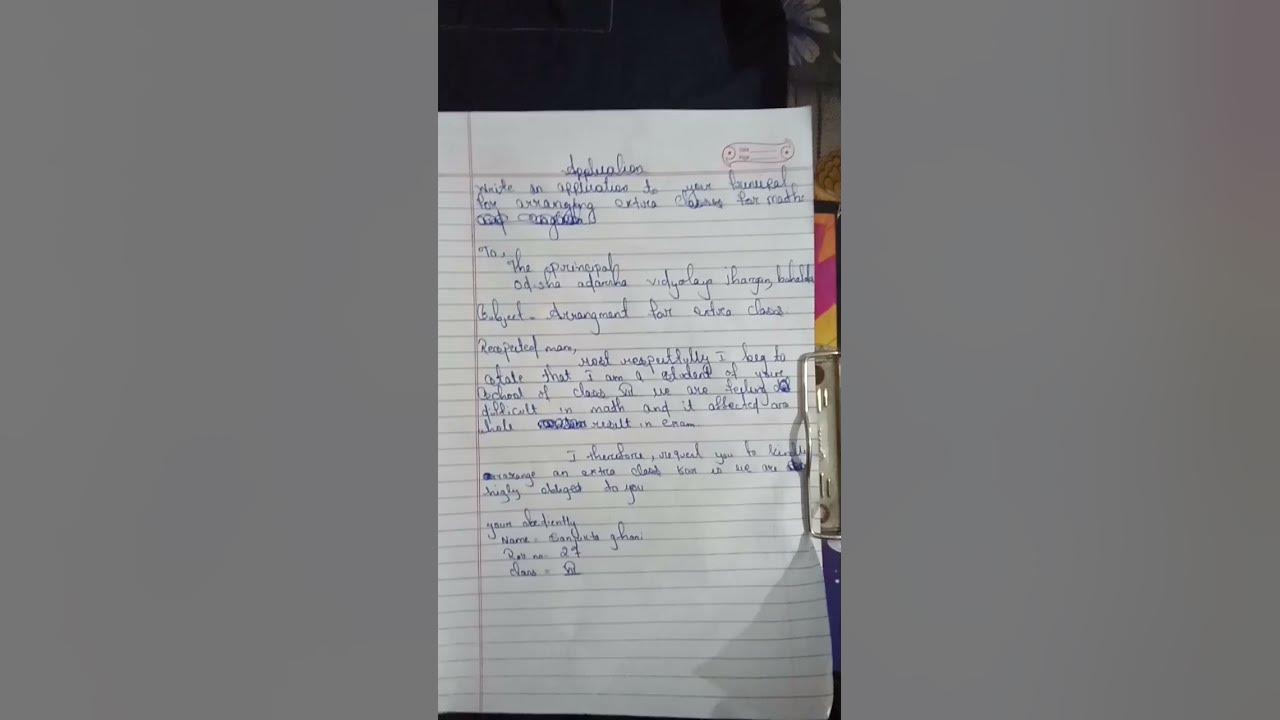 Application
Write an application to your Principal
for arranging extra classes for maths
To,
The principal
Odisha adarsha vidyalaya
Subject - Arrangment for extra class.
Respected mam,
most respectfully I beg to
state that I am a student of your
School of class VII we are feeling
difficult in math and it affected are
whole result in exam.
I therefore, request you to kindly
arange an extra class we are
higly obliged to you
your obediently
Name =
Roll no = 27
class = VII